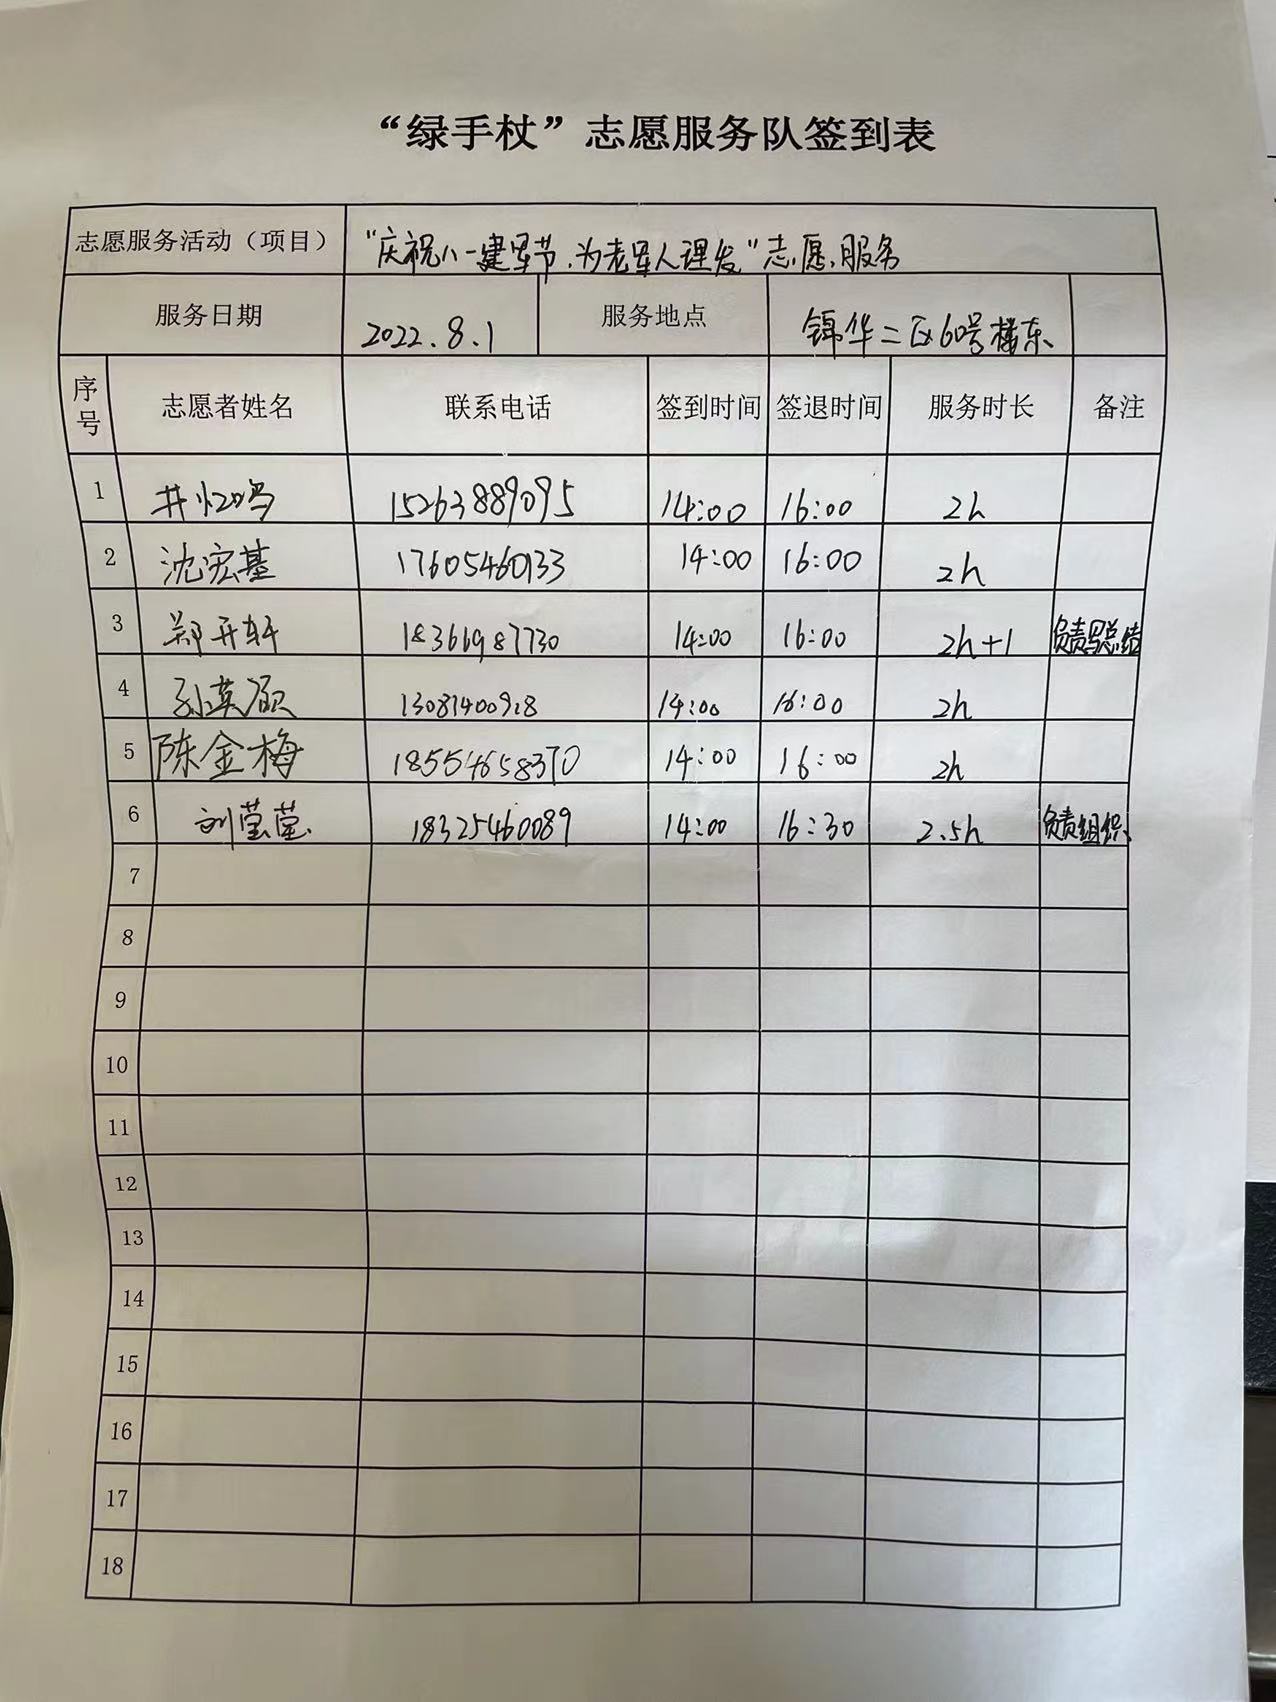 “绿手杖”志愿服务队签到表
志愿服务活动（项目） “庆祝八一建军节,为老军人理发”志愿服务
服务日期 2022.8.1 服务地点 锦华二区60号楼东
序号 志愿者姓名 联系电话 签到时间 签退时间 服务时长 备注
1 井 15263889095 14:00 16:00 2h
2 沈宏基 17605460133 14:00 16:00 2h
3 郑开轩 18366987730 14:00 16:00 2h+1 负责写总结
4 孙英 14:00 16:00 2h
5 陈金梅 18554658370 14:00 16:00 2h
6 刘莹莹 18325460089 14:00 16:30 2.5h 负责组织
7
8
9
10
11
12
13
14
15
16
17
18